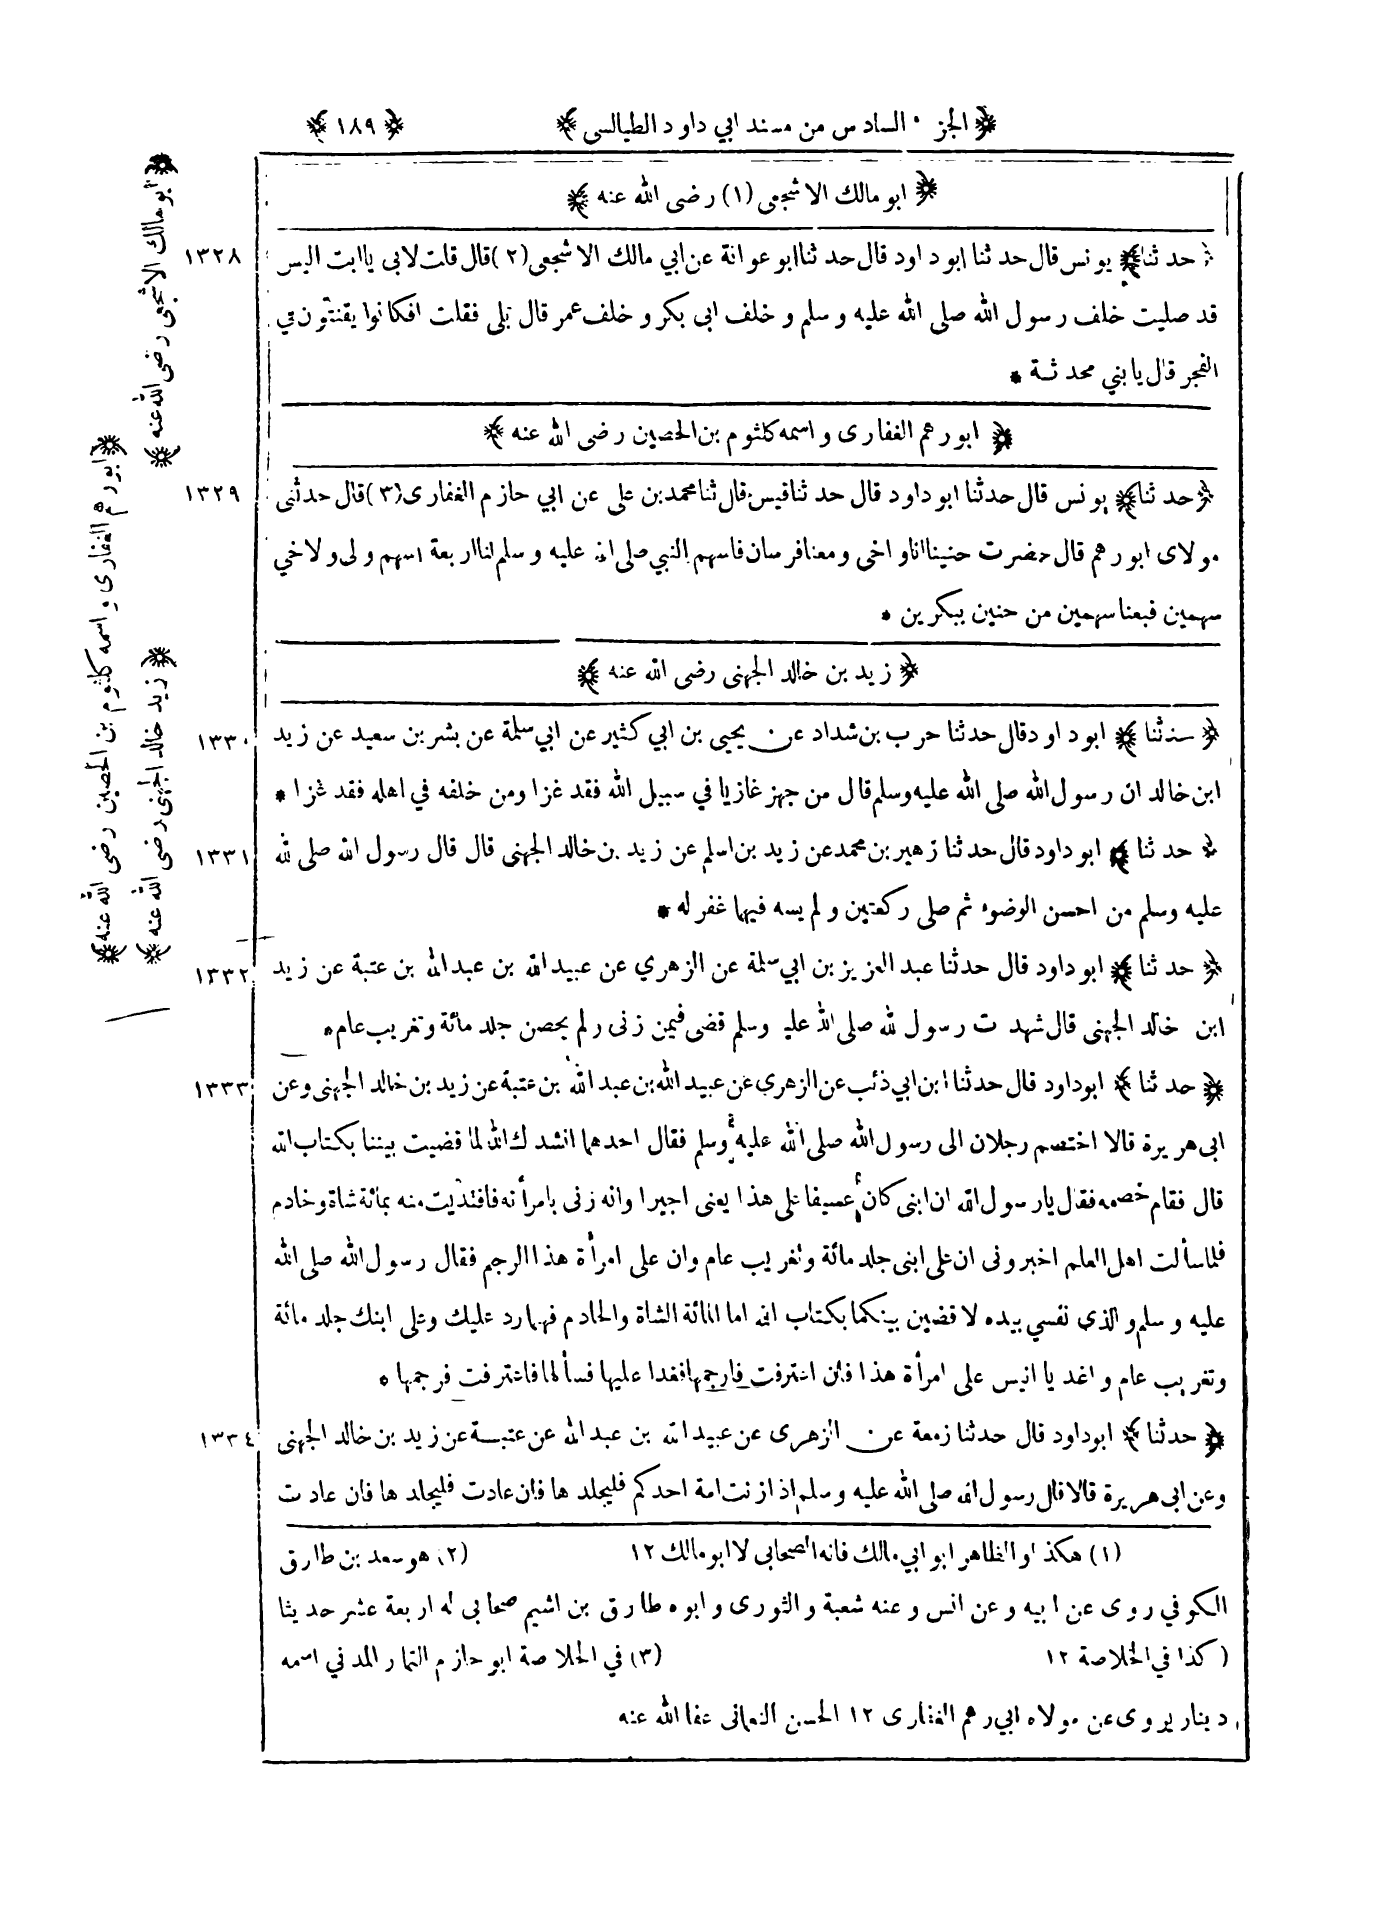 ﴿ الجزء السادس من مسند ابي داود الطيالسى ﴾ ﴿ ١٨٩ ﴾
﴿ ابو مالك الاشجعى (١) رضى الله عنه ﴾
١٣٢٨ ﴿ حدثنا ﴾ يونس قال حدثنا ابوداود قال حدثنا ابو عوانة عن ابي مالك الاشجعى (٢) قال قلت لابى يا ابت اليس
قد صليت خلف رسول الله صلى الله عليه وسلم وخلف ابى بكر وخلف عمر قال بلى فقلت افكانوا يقنتون في
الفجر قال يا بني محدثة *
﴿ ابورهم الغفارى واسمه كلثوم بن الحصين رضى الله عنه ﴾
١٣٢٩ ﴿ حدثنا ﴾ يونس قال حدثنا ابوداود قال حدثنا قيس قال ثنا محمد بن على عن ابي حازم الغفارى (٣) قال حدثنى
مولاى ابورهم قال حضرت حنينا انا واخى ومعنا فرسان فاسهم النبي صلى الله عليه وسلم لنا اربعة اسهم ولى ولاخي
سهمين فبعنا سهمين من حنين ببكرين *
﴿ زيد بن خالد الجهنى رضى الله عنه ﴾
١٣٣٠ ﴿ حدثنا ﴾ ابوداود قال حدثنا حرب بن شداد عن يحيى بن ابي كثير عن ابي سلمة عن بشر بن سعيد عن زيد
ابن خالد ان رسول الله صلى الله عليه وسلم قال من جهز غازيا في سبيل الله فقد غزا ومن خلفه في اهله فقد غزا *
١٣٣١ ﴿ حدثنا ﴾ ابوداود قال حدثنا زهير بن محمد عن زيد بن اسلم عن زيد بن خالد الجهنى قال قال رسول الله صلى الله
عليه وسلم من احسن الوضوء ثم صلى ركعتين ولم يسه فيهما غفر له *
١٣٣٢ ﴿ حدثنا ﴾ ابوداود قال حدثنا عبد العزيز بن ابي سلمة عن الزهري عن عبيد الله بن عبد الله بن عتبة عن زيد
ابن خالد الجهنى قال شهدت رسول الله صلى الله عليه وسلم قضى فيمن زنى ولم يحصن جلد مائة وتغريب عام *
١٣٣٣ ﴿ حدثنا ﴾ ابوداود قال حدثنا ابن ابي ذئب عن الزهرى عن عبيد الله بن عبد الله بن عتبة عن زيد بن خالد الجهنى وعن
ابى هريرة قالا اختصم رجلان الى رسول الله صلى الله عليه وسلم فقال احدهما انشدك الله لما قضيت بيننا بكتاب الله
قال فقام خصمه فقال يا رسول الله ان ابنى كان عسيفا على هذا يعنى اجيرا وانه زنى بامرأته فافتديت منه بمائة شاة وخادم
فلما سألت اهل العلم اخبرونى ان على ابنى جلد مائة وتغريب عام وان على امرأة هذا الرجم فقال رسول الله صلى الله
عليه وسلم والذى نفسي بيده لاقضين بينكما بكتاب الله اما المائة الشاة والخادم فهما رد عليك وعلى ابنك جلد مائة
وتغريب عام واغد يا انيس على امرأة هذا فان اعترفت فارجمها فغدا عليها فسألها فاعترفت فرجمها *
١٣٣٤ ﴿ حدثنا ﴾ ابوداود قال حدثنا زمعة عن الزهرى عن عبيد الله بن عبد الله عن عتبة عن زيد بن خالد الجهنى
وعن ابى هريرة قالا قال رسول الله صلى الله عليه وسلم اذا زنت امة احدكم فليجلدها فان عادت فليجلدها فان عادت
(١) هكذا والظاهر ابو ابي مالك فانه الصحابى لا ابو مالك ١٢ (٢) هو سعد بن طارق
الكوفي روى عن ابيه وعن انس وعنه شعبة والثورى وابوه طارق بن اشيم صحابى له اربعة عشر حديثا
( كذا في الخلاصة ١٢ (٣) في الخلاصة ابو حازم التمار المدني اسمه
دينار يروى عن مولاه ابي رهم الغفارى ١٢ الحسن النعمانى عفا الله عنه
﴿ ابو مالك الاشجعى رضى الله عنه ﴾
﴿ ابورهم الغفارى واسمه كلثوم بن الحصين رضى الله عنه ﴾
﴿ زيد خالد الجهنى رضى الله عنه ﴾